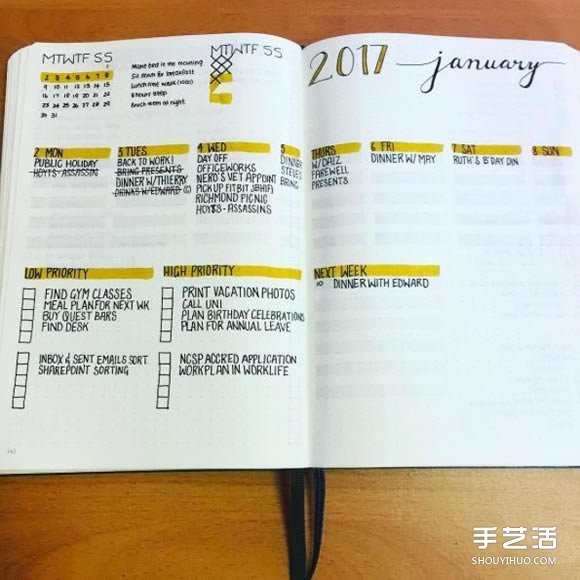 MTWTFSS
1
2 3 4 5 6 7 8
9 10 11 12 13 14 15
16 17 18 19 20 21 22
23 24 25 26 27 28 29
30 31
Made bed in the morning
Sit down for breakfast
Lunch time walk (1000)
8 hours sleep
Brush teeth at night
MTWTFSS
2017 january
2 MON
PUBLIC HOLIDAY
HOYTS - ASSASSINS
3 TUES
BACK TO WORK!
BRING PRESENTS
DINNER W/THIERRY
DRINKS W/EDWARD (C)
4 WED
DAY OFF
OFFICEWORKS
NERD'S VET APPOINT
PICK UP FITBIT JBHIFI
RICHMOND PICNIC
HOYTS - ASSASSINS
5 THURS
DINNER W/DAIZ
STEVE'S FAREWELL
BRING PRESENTS
6 FRI
DINNER W/ MAY
7 SAT
RUTH'S B'DAY DIN
8 SUN
LOW PRIORITY
FIND GYM CLASSES
MEAL PLAN FOR NEXT WK
BUY QUEST BARS
FIND DESK
INBOX & SENT EMAILS SORT
SHAREPOINT SORTING
HIGH PRIORITY
PRINT VACATION PHOTOS
CALL UNI
PLAN BIRTHDAY CELEBRATIONS
PLAN FOR ANNUAL LEAVE
NCSP ACCRED APPLICATION
WORKPLAN IN WORKLIFE
NEXT WEEK
10 DINNER WITH EDWARD
手艺活
SHOUYIHUO.COM